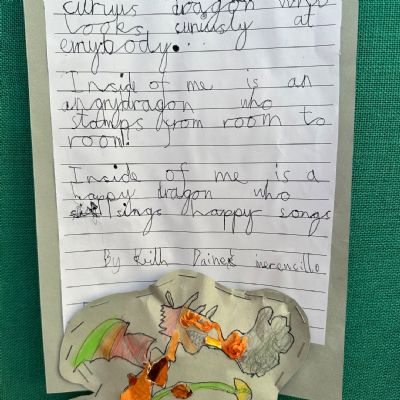 curiyus dragon who
looks curiusty at
emybody...
Inside of me is an
angrydragon who
stamps from room to
room!
Inside of me is a
happy dragon who
sings happy songs
By Keith merencillo